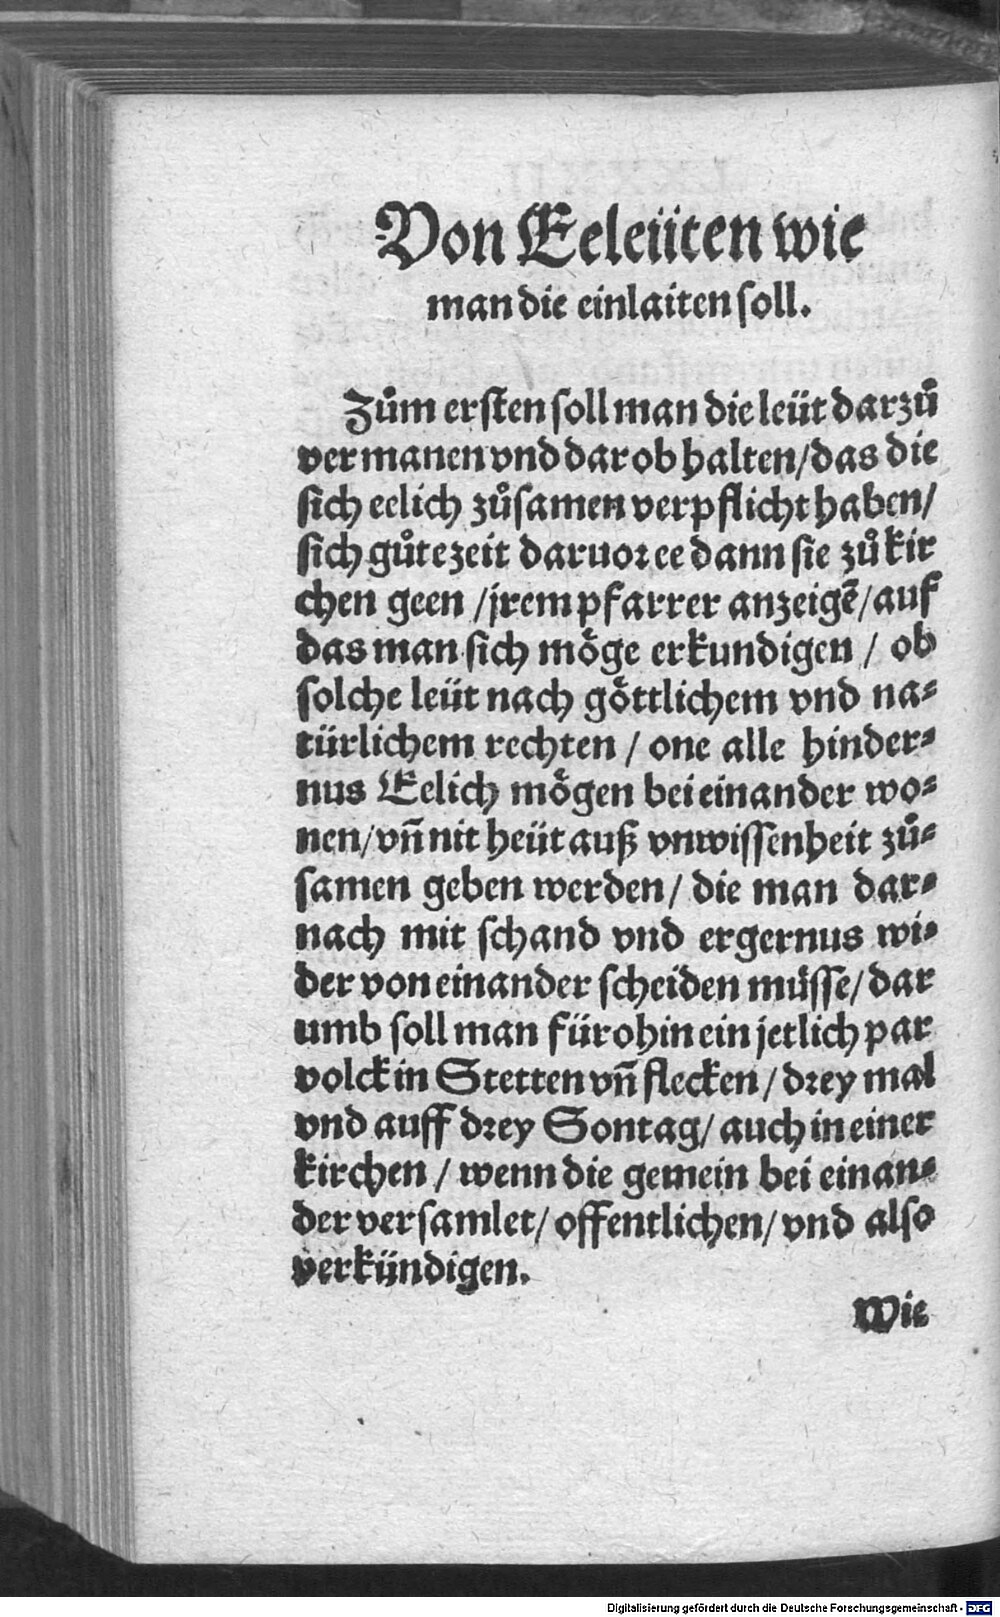 Von Eeleüten wie
man die einlaiten soll.
Zům ersten soll man die leüt darzů
vermanen vnd darob halten/das die
sich eelich zůsamen verpflicht haben/
sich gůte zeit daruor ee dann sie zů kir
chen geen /jrem pfarrer anzeigẽ/auf
das man sich mo᷑ge erkundigen / ob
solche leüt nach go᷑ttlichem vnd na⸗
türlichem rechten / one alle hinder⸗
nus Eelich mo᷑gen bei einander wo⸗
nen/vn̄ nit heüt auß vnwissenheit zů⸗
samen geben werden/ die man dar⸗
nach mit schand vnd ergernus wi⸗
der von einander scheiden müsse/dar
umb soll man fürohin ein jetlich par
volck in Stetten vn̄ flecken/drey mal
vnd auff drey Sontag/auch in einer
kirchen / wenn die gemein bei einan⸗
der versamlet/offentlichen/vnd also
verkündigen.
Wie
Digitalisierung gefördert durch die Deutsche Forschungsgemeinschaft - DFG